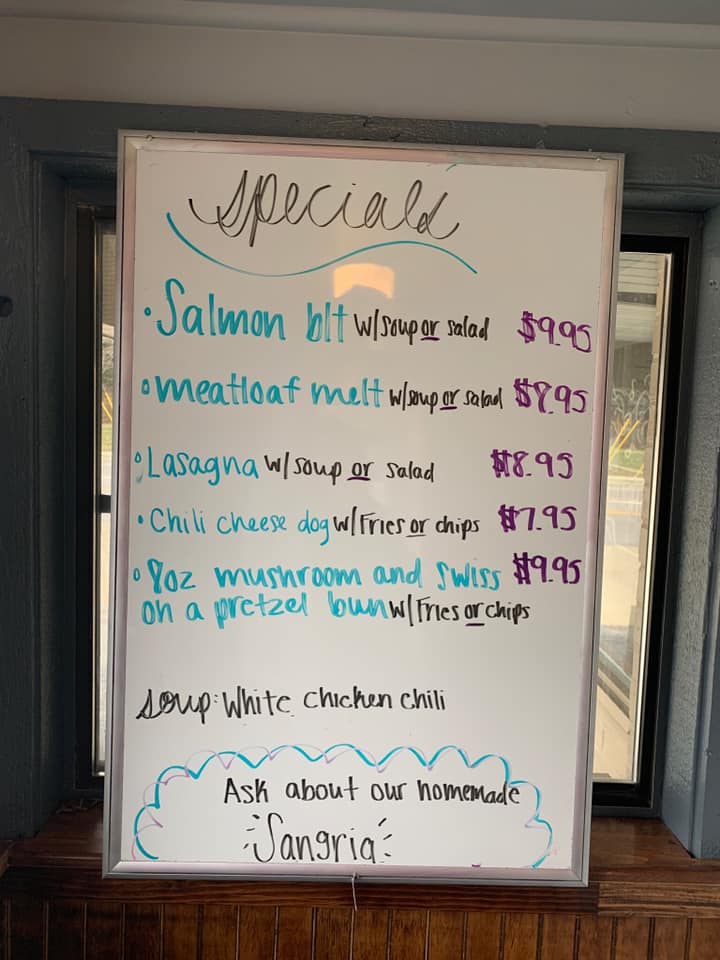 Specials
• Salmon blt w/soup or salad $9.95
• meatloaf melt w/soup or salad $8.95
• Lasagna w/soup or salad $8.95
• Chili cheese dog w/Fries or chips $7.95
• 8oz mushroom and swiss $9.95
on a pretzel bun w/Fries or chips
soup: White chicken chili
Ask about our homemade
Sangria